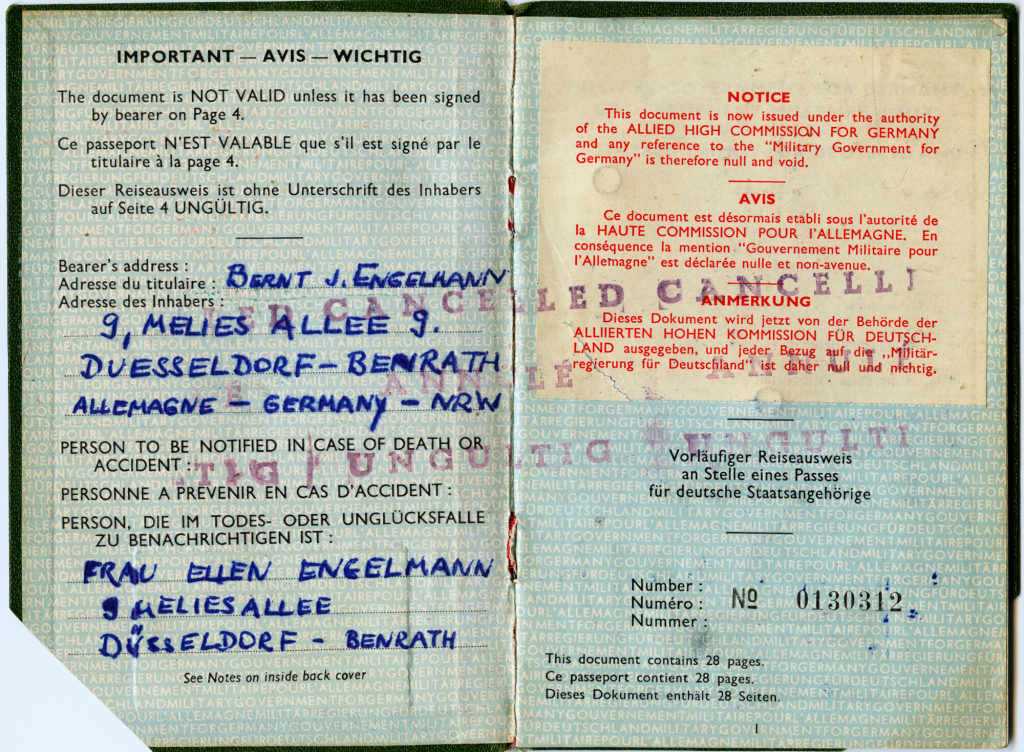 IMPORTANT — AVIS — WICHTIG
The document is NOT VALID unless it has been signed
by bearer on Page 4.
Ce passeport N'EST VALABLE que s'il est signé par le
titulaire à la page 4.
Dieser Reiseausweis ist ohne Unterschrift des Inhabers
auf Seite 4 UNGÜLTIG.
Bearer's address :
Adresse du titulaire : BERNT J. ENGELMANN
Adresse des Inhabers :
9, MELIES ALLEE 9.
DUESSELDORF – BENRATH
ALLEMAGNE – GERMANY – NRW
PERSON TO BE NOTIFIED IN CASE OF DEATH OR
ACCIDENT :
PERSONNE A PREVENIR EN CAS D'ACCIDENT :
PERSON, DIE IM TODES- ODER UNGLÜCKSFALLE
ZU BENACHRICHTIGEN IST :
FRAU ELLEN ENGELMANN
9 MELIES ALLEE
DÜSSELDORF – BENRATH
See Notes on inside back cover
NOTICE
This document is now issued under the authority
of the ALLIED HIGH COMMISSION FOR GERMANY
and any reference to the "Military Government for
Germany" is therefore null and void.
AVIS
Ce document est désormais etabli sous l'autorité de
la HAUTE COMMISSION POUR l'ALLEMAGNE. En
conséquence la mention "Gouvernement Militaire pour
l'Allemagne" est déclarée nulle et non-avenue.
LED CANCELLED CANCELL
ANMERKUNG
Dieses Dokument wird jetzt von der Behörde der
ALLIIERTEN HOHEN KOMMISSION FÜR DEUTSCH-
LAND ausgegeben, und jeder Bezug auf die „Militär-
regierung für Deutschland" ist daher null und nichtig.
É ANNULÉ ANNULÉ
TIG UNGULTIG UNGULTI
Vorläufiger Reiseausweis
an Stelle eines Passes
für deutsche Staatsangehörige
Number :
Numéro : Nº 0130312
Nummer :
This document contains 28 pages.
Ce passeport contient 28 pages.
Dieses Dokument enthält 28 Seiten.
1